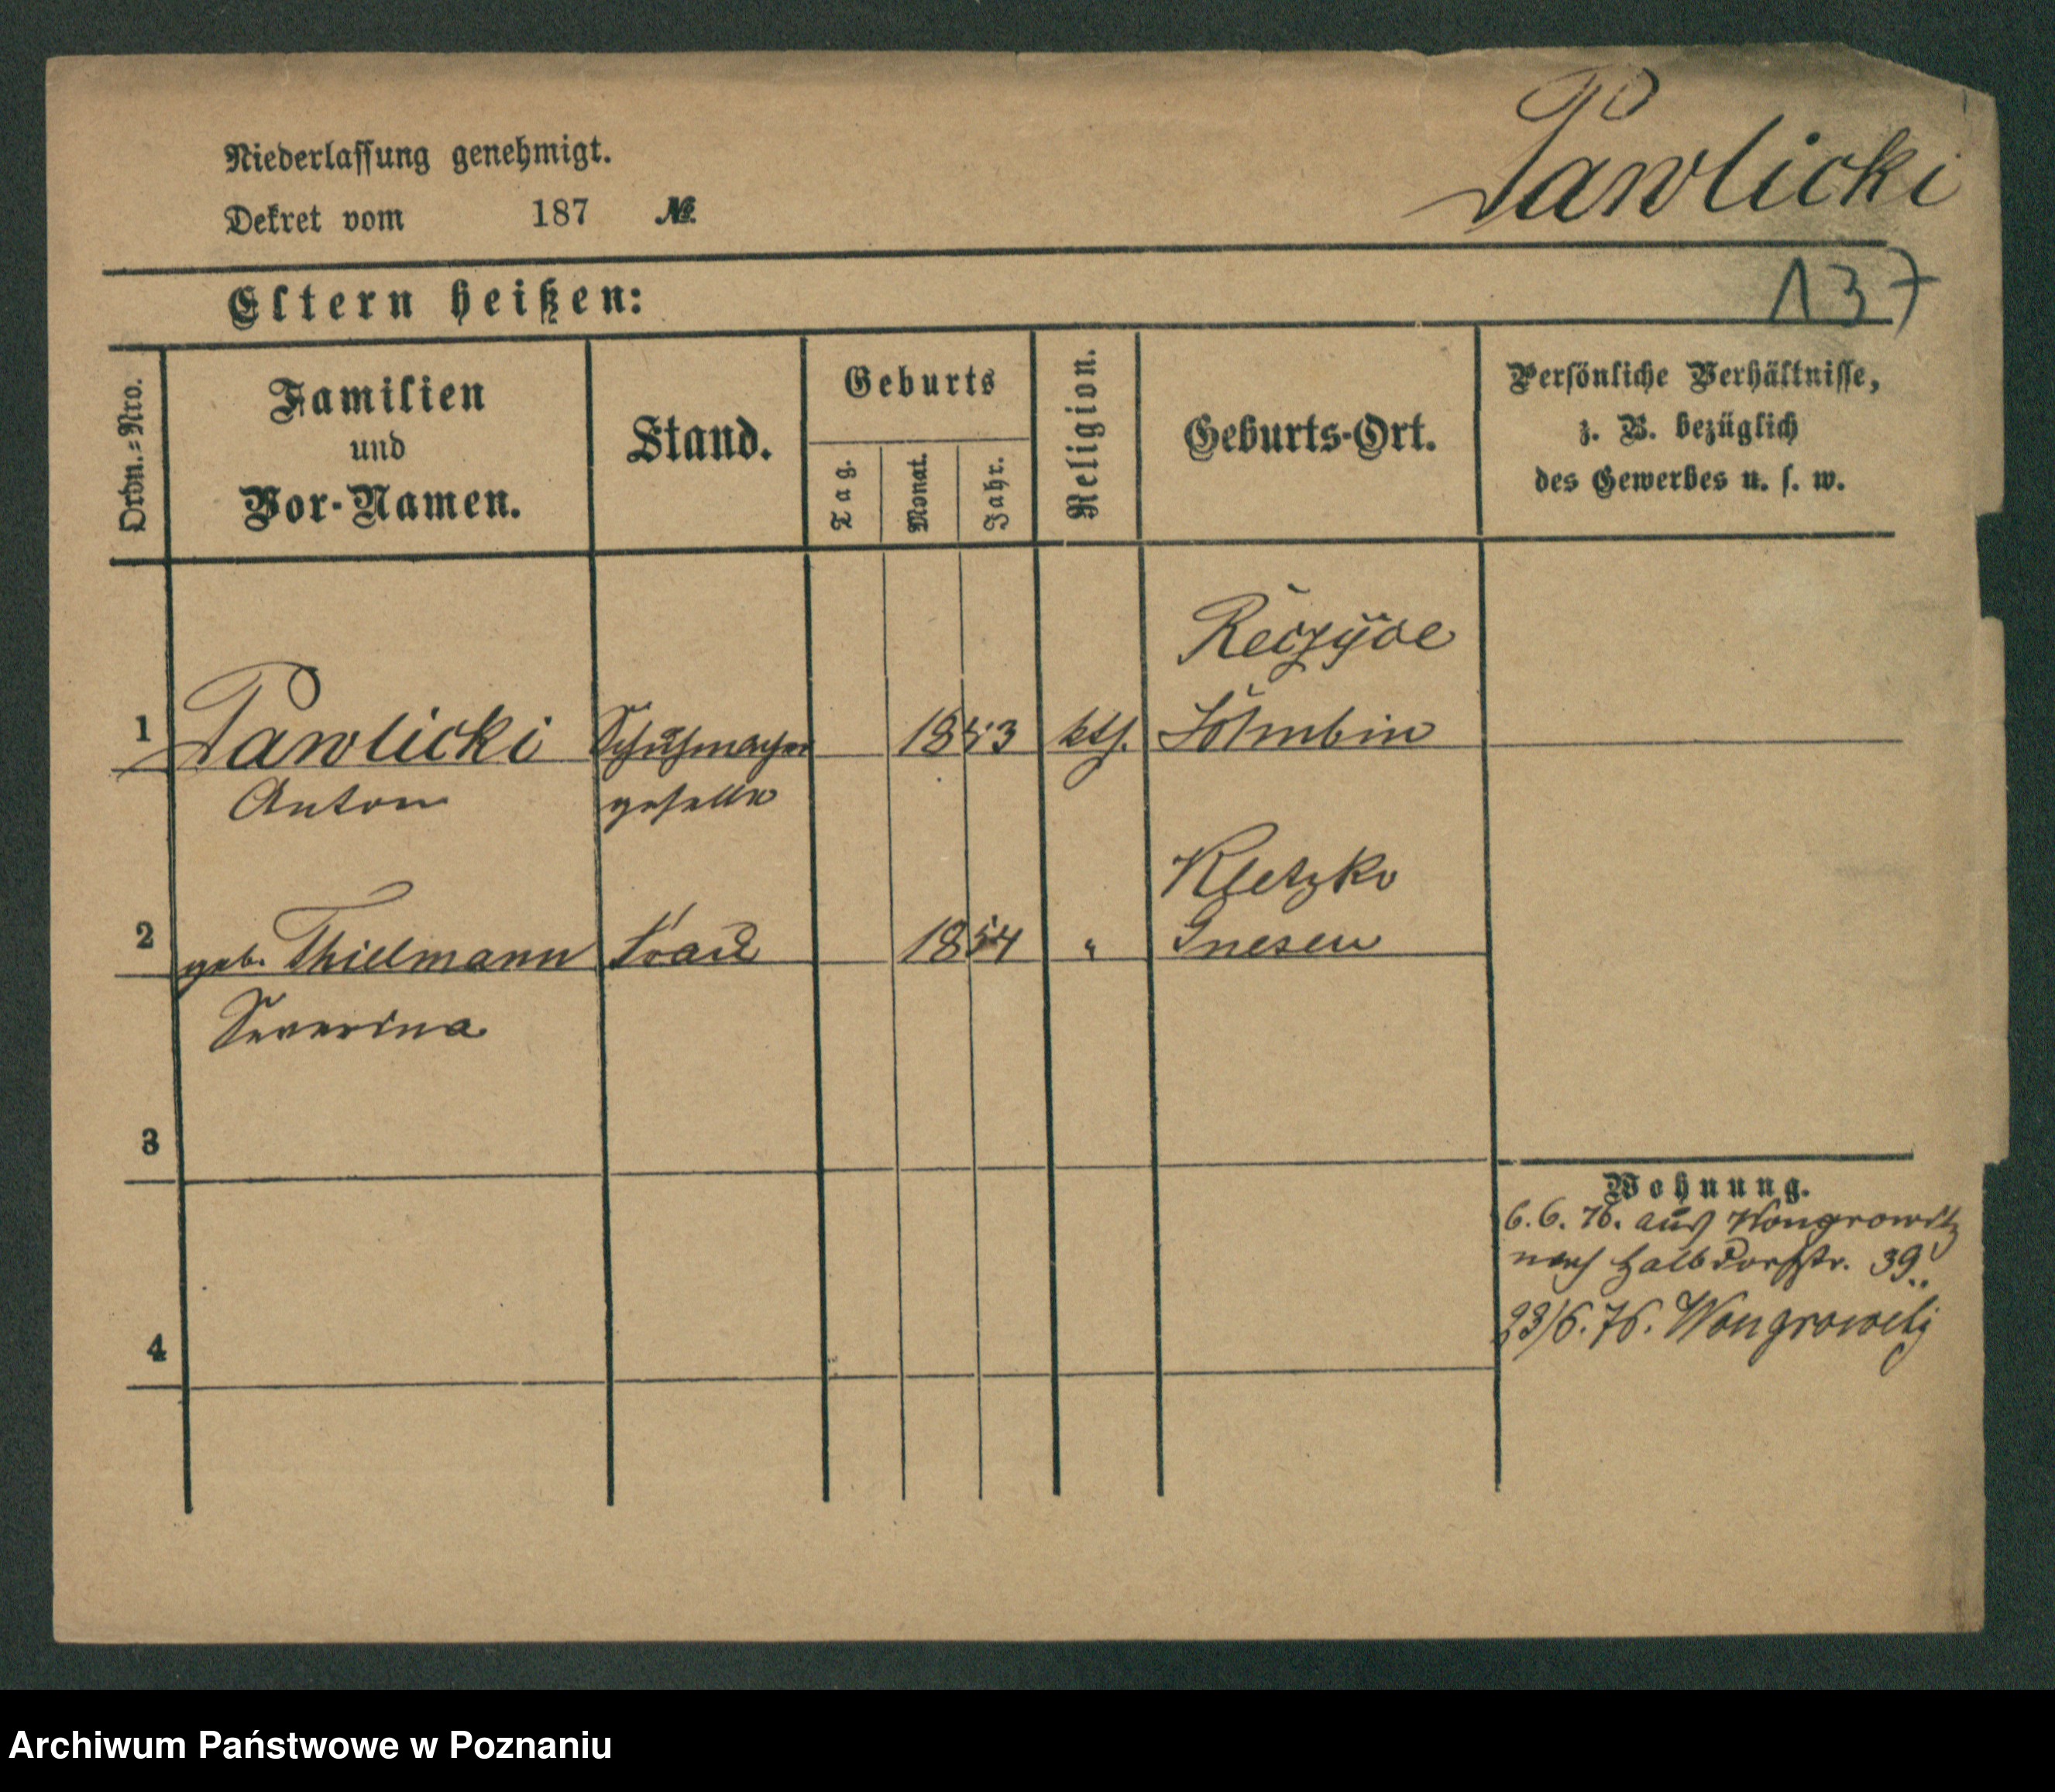 Niederlassung genehmigt.
Pawlicki
Dekret vom 187 №
137
Eltern heißen:
Ordn.=Nro.
Familien
und
Vor-Namen.
Stand.
Geburts
Tag.
Monat.
Jahr.
Religion.
Geburts-Ort.
Persönliche Verhältnisse,
z. B. bezüglich
des Gewerbes u. s. w.
1 Pawlicki Schuhmacher 1853 kth.
Anton geselle
Kletzko
2 geb. Thielmann Frau 1854 " Gnesen
Severina
3
4
Wohnung.
6.6.76. aus Wongrowitz
nach Halbdorfstr. 39.
23/6.76. Wongrowitz
Archiwum Państwowe w Poznaniu